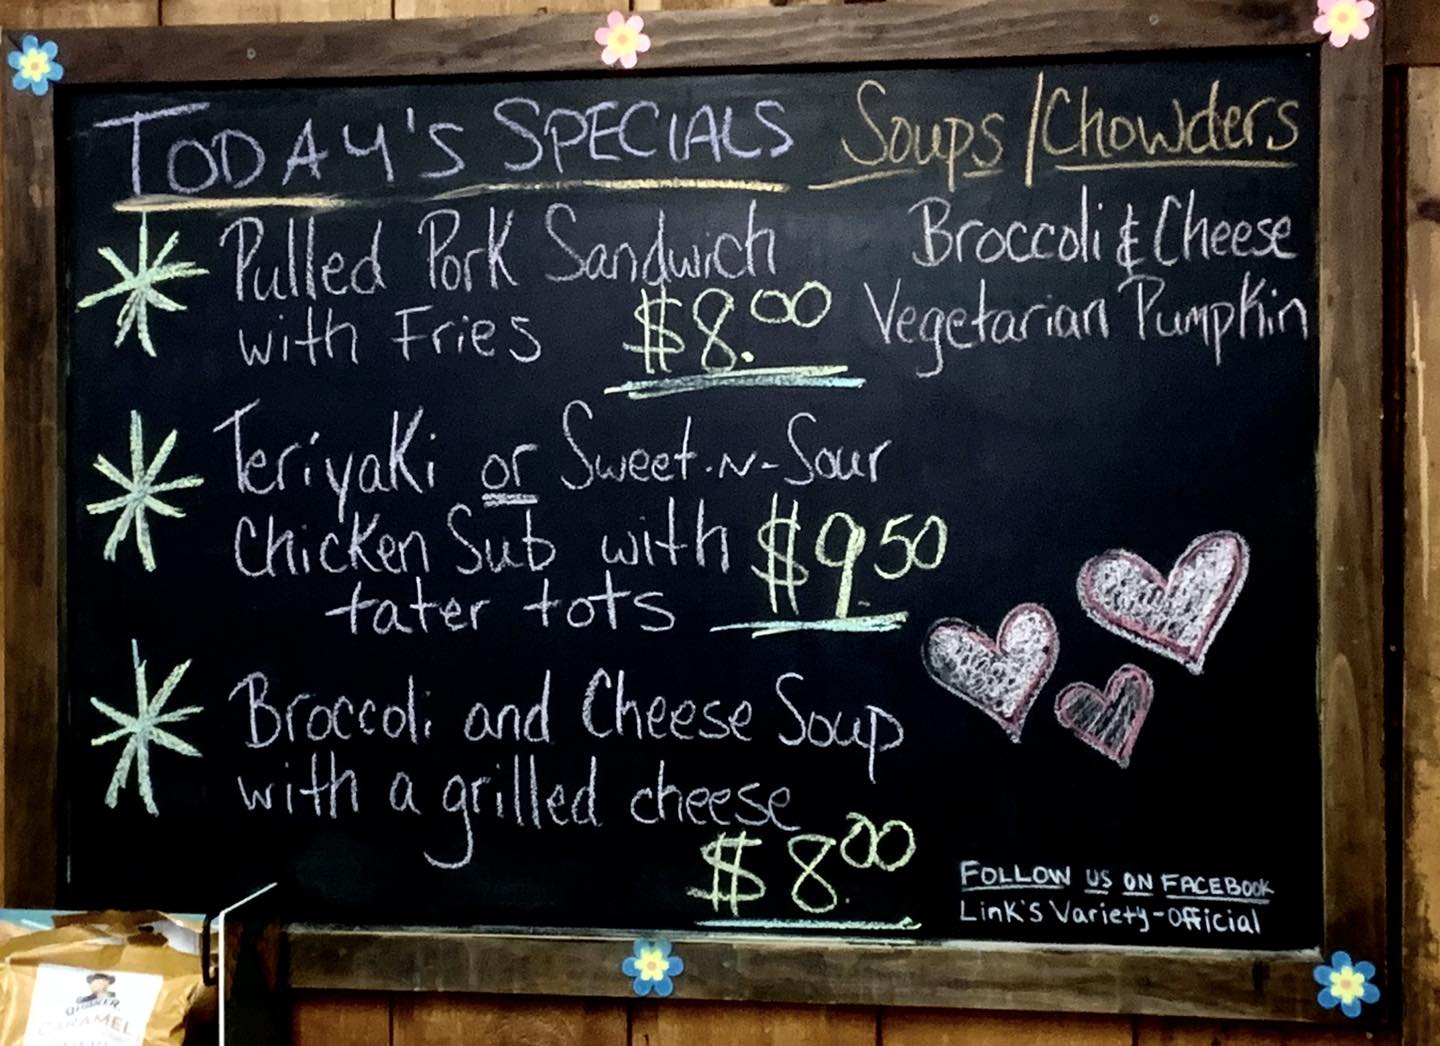 TODAY'S SPECIALS
Pulled Pork Sandwich
with Fries $8.00
Teriyaki or Sweet-N-Sour
Chicken Sub with $9.50
tater tots
Broccoli and Cheese Soup
with a grilled cheese
$8.00
Soups/Chowders
Broccoli & Cheese
Vegetarian Pumpkin
FOLLOW US ON FACEBOOK
Link's Variety-Official
QUAKER
CARAMEL